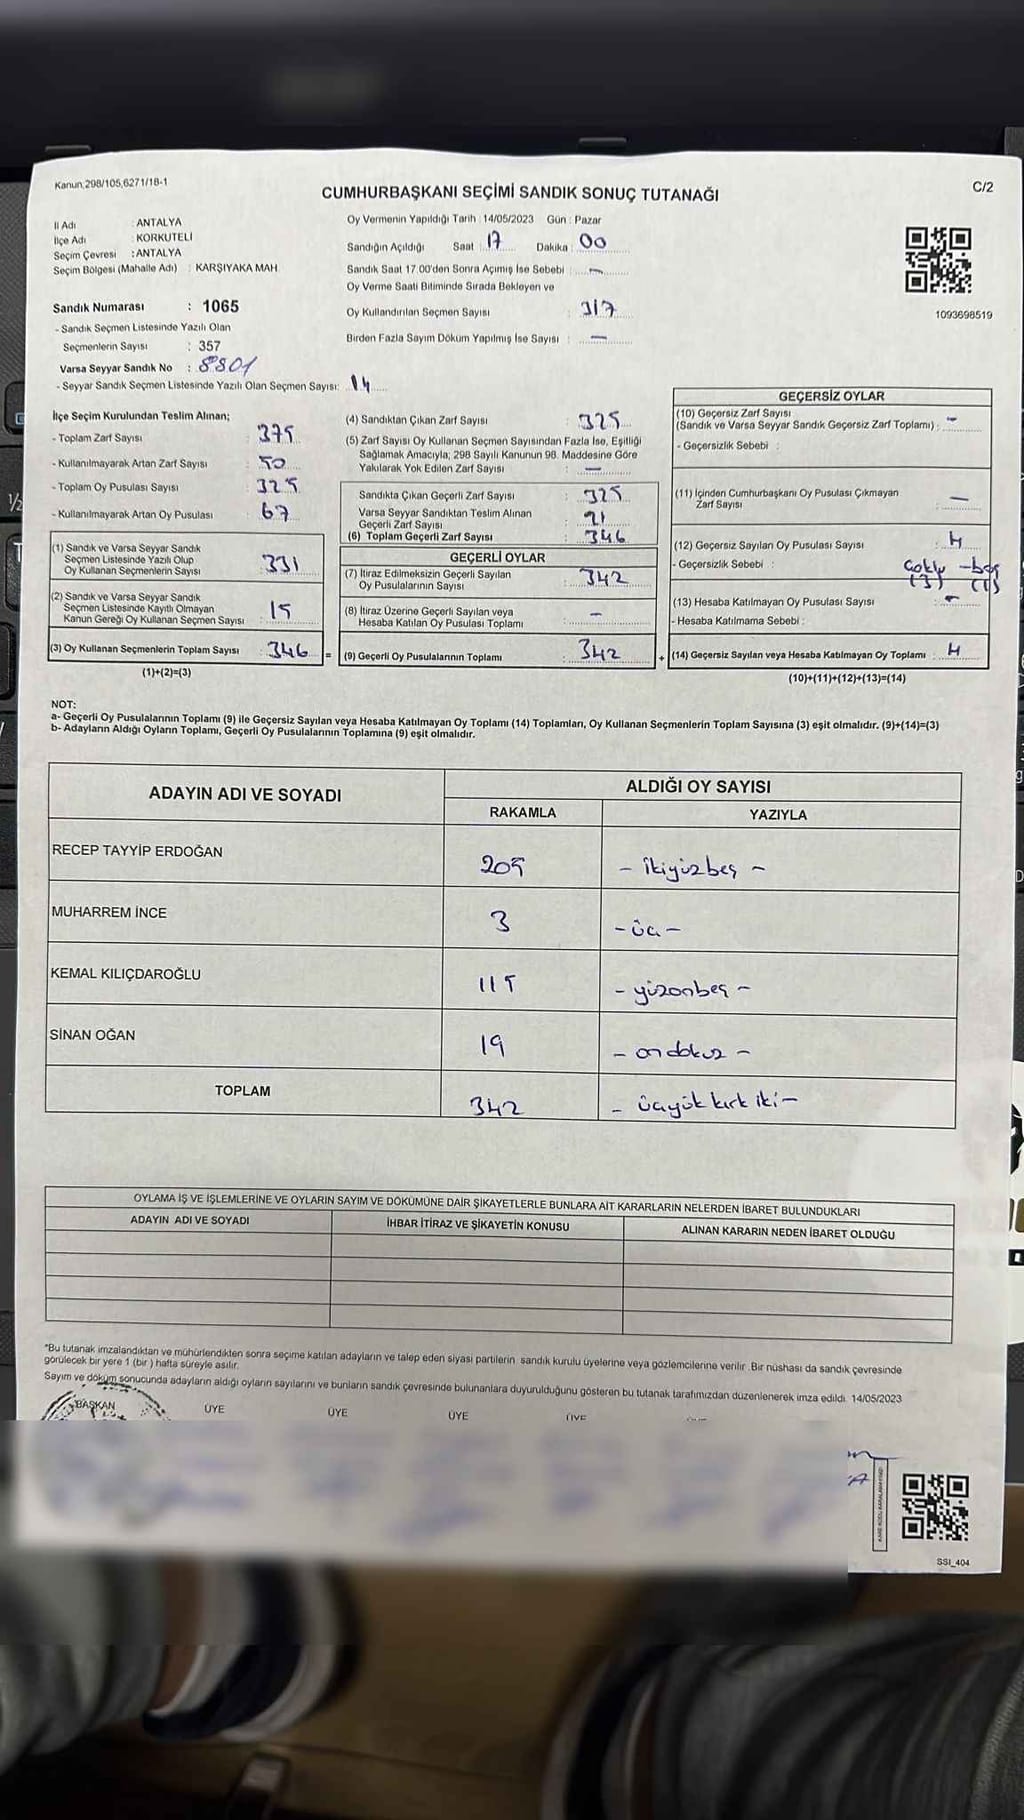 Kanun,298/105,6271/18-1
CUMHURBAŞKANI SEÇİMİ SANDIK SONUÇ TUTANAĞI
C/2
İl Adı : ANTALYA
İlçe Adı : KORKUTELİ
Seçim Çevresi : ANTALYA
Seçim Bölgesi (Mahalle Adı) : KARŞIYAKA MAH.
Oy Vermenin Yapıldığı Tarih : 14/05/2023 Gün : Pazar
Sandığın Açıldığı Saat : 17 Dakika : 00
Sandık Saat 17.00'den Sonra Açımış İse Sebebi : —
Oy Verme Saati Bitiminde Sırada Bekleyen ve
Oy Kullandırılan Seçmen Sayısı : 317
Birden Fazla Sayım Döküm Yapılmış İse Sayısı : —
1093698519
Sandık Numarası : 1065
- Sandık Seçmen Listesinde Yazılı Olan
Seçmenlerin Sayısı : 357
Varsa Seyyar Sandık No : 8801
- Seyyar Sandık Seçmen Listesinde Yazılı Olan Seçmen Sayısı: 14
İlçe Seçim Kurulundan Teslim Alınan;
- Toplam Zarf Sayısı : 375
- Kullanılmayarak Artan Zarf Sayısı : 50
- Toplam Oy Pusulası Sayısı : 325
- Kullanılmayarak Artan Oy Pusulası : 67
(1) Sandık ve Varsa Seyyar Sandık
Seçmen Listesinde Yazılı Olup
Oy Kullanan Seçmenlerin Sayısı : 331
(2) Sandık ve Varsa Seyyar Sandık
Seçmen Listesinde Kayıtlı Olmayan
Kanun Gereği Oy Kullanan Seçmen Sayısı : 15
(3) Oy Kullanan Seçmenlerin Toplam Sayısı : 346 =
(1)+(2)=(3)
(4) Sandıktan Çıkan Zarf Sayısı : 325
(5) Zarf Sayısı Oy Kullanan Seçmen Sayısından Fazla İse, Eşitliği
Sağlamak Amacıyla; 298 Sayılı Kanunun 98. Maddesine Göre
Yakılarak Yok Edilen Zarf Sayısı : —
Sandıkta Çıkan Geçerli Zarf Sayısı : 325
Varsa Seyyar Sandıktan Teslim Alınan
Geçerli Zarf Sayısı : 21
(6) Toplam Geçerli Zarf Sayısı : 346
GEÇERLİ OYLAR
(7) İtiraz Edilmeksizin Geçerli Sayılan
Oy Pusulalarının Sayısı : 342
(8) İtiraz Üzerine Geçerli Sayılan veya
Hesaba Katılan Oy Pusulası Toplamı : —
(9) Geçerli Oy Pusulalarının Toplamı : 342 +
GEÇERSİZ OYLAR
(10) Geçersiz Zarf Sayısı
(Sandık ve Varsa Seyyar Sandık Geçersiz Zarf Toplamı) : —
- Geçersizlik Sebebi :
(11) İçinden Cumhurbaşkanı Oy Pusulası Çıkmayan
Zarf Sayısı : —
(12) Geçersiz Sayılan Oy Pusulası Sayısı : 4
- Geçersizlik Sebebi : Çoklu - boş
(3) (1)
(13) Hesaba Katılmayan Oy Pusulası Sayısı : —
- Hesaba Katılmama Sebebi :
(14) Geçersiz Sayılan veya Hesaba Katılmayan Oy Toplamı : 4
(10)+(11)+(12)+(13)=(14)
NOT:
a- Geçerli Oy Pusulalarının Toplamı (9) ile Geçersiz Sayılan veya Hesaba Katılmayan Oy Toplamı (14) Toplamları, Oy Kullanan Seçmenlerin Toplam Sayısına (3) eşit olmalıdır. (9)+(14)=(3)
b- Adayların Aldığı Oyların Toplamı, Geçerli Oy Pusulalarının Toplamına (9) eşit olmalıdır.
ADAYIN ADI VE SOYADI
ALDIĞI OY SAYISI
RAKAMLA YAZIYLA
RECEP TAYYİP ERDOĞAN 205 - ikiyüzbeş -
MUHARREM İNCE 3 - üç -
KEMAL KILIÇDAROĞLU 115 - yüzonbeş -
SİNAN OĞAN 19 - ondokuz -
TOPLAM 342 - üçyük kırk iki -
OYLAMA İŞ VE İŞLEMLERİNE VE OYLARIN SAYIM VE DÖKÜMÜNE DAİR ŞİKAYETLERLE BUNLARA AİT KARARLARIN NELERDEN İBARET BULUNDUKLARI
ADAYIN ADI VE SOYADI İHBAR İTİRAZ VE ŞİKAYETİN KONUSU ALINAN KARARIN NEDEN İBARET OLDUĞU
*Bu tutanak imzalandıktan ve mühürlendikten sonra seçime katılan adayların ve talep eden siyasi partilerin sandık kurulu üyelerine veya gözlemcilerine verilir. Bir nüshası da sandık çevresinde
görülecek bir yere 1 (bir ) hafta süreyle asılır.
Sayım ve döküm sonucunda adayların aldığı oyların sayılarını ve bunların sandık çevresinde bulunanlara duyurulduğunu gösteren bu tutanak tarafımızdan düzenlenerek imza edildi. 14/05/2023
BAŞKAN ÜYE ÜYE ÜYE ÜYE
SSI_404